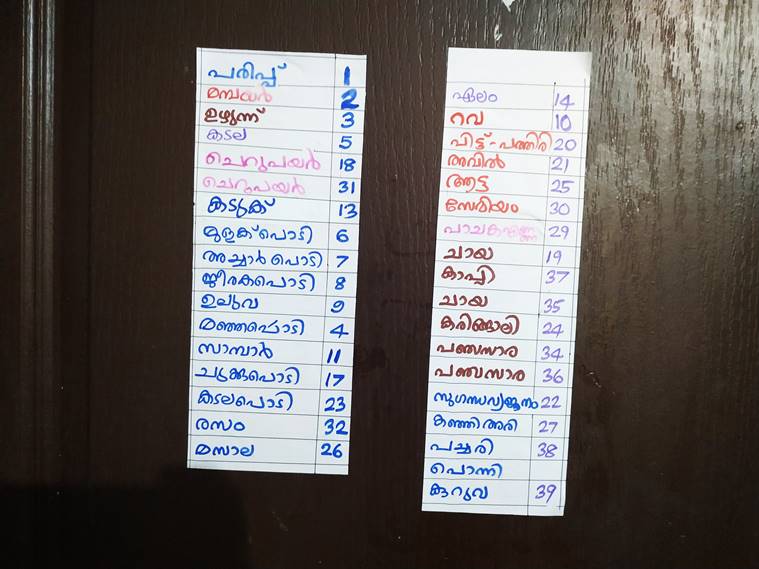 പരിപ്പ് 1
മമ്പയർ 2
ഉഴുന്ന് 3
കടല 5
ചെറുപയർ 18
ചെറുപയർ 31
കടുക് 13
മുളക്പൊടി 6
അച്ചാർ പൊടി 7
ജീരകപൊടി 8
ഉലുവ 9
മഞ്ഞപൊടി 4
സാമ്പാർ 11
ചുക്കുപൊടി 17
കടലപൊടി 23
രസം 32
മസാല 26
ഏലം 14
റവ 10
പിട്ട് - പത്തിരി 20
അവിൽ 21
ആട്ട 25
സേരിയം 30
പാചകഎണ്ണ 29
ചായ 19
കാപ്പി 37
ചായ 35
കരിങ്ങാലി 24
പഞ്ചസാര 34
പഞ്ചസാര 36
സുഗന്ധവ്യജ്ജനം 22
കഞ്ഞിഅരി 27
പച്ചരി 38
പൊന്നി
കുറുവ 39